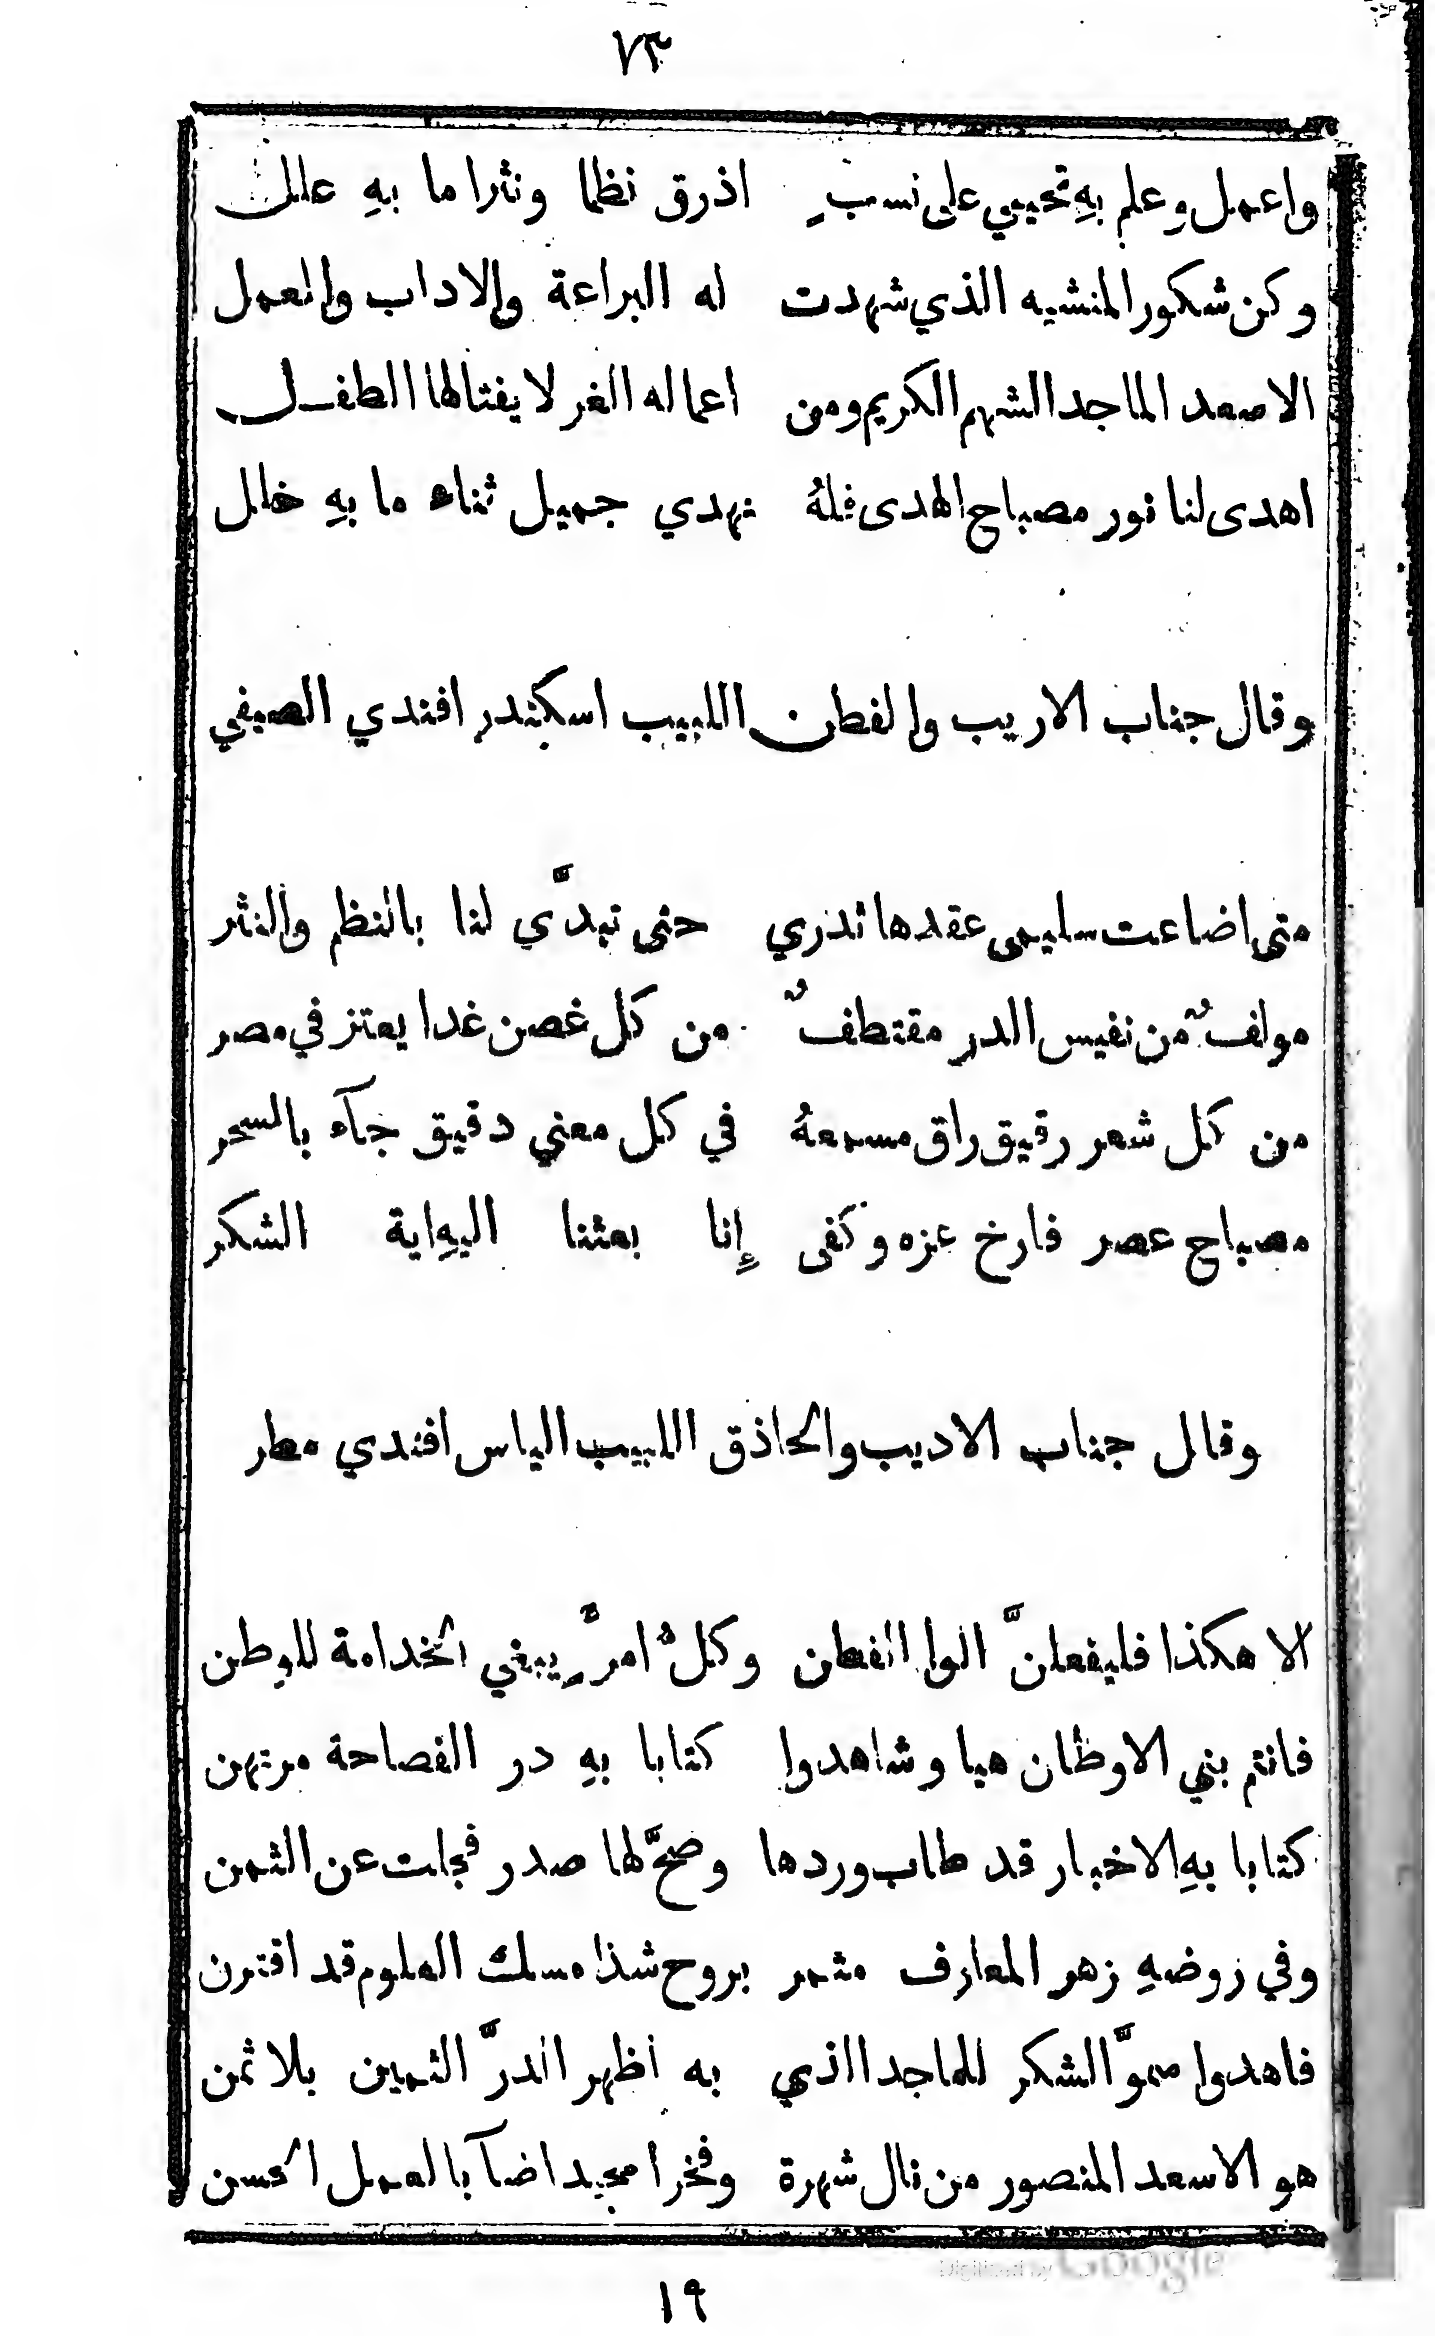 ٧٣
واعمل وعلم بهِ تحيي على نسبٍ اذرق نظما ونثرا ما بهِ علل
وكن شكور المنشيه الذي شهدت له البراعة والاداب والعمل
الاصعد الماجد الشهم الكريم ومن اعماله الغر لا يغتالها الطفل
اهدى لنا نور مصباح الهدى فلهُ نهدي جميل ثناء ما بهِ خلل
وقال جناب الاريب والفطن اللبيب اسكندر افندي الصيفي
متى اضاعت سليمى عقدها تدري حتى تبدَّى لنا بالنظم والنثر
مولفٌ من نفيس الدر مقتطفٌ من كل غصن غدا يعتز في مصر
من كل شعر رقيق راق مسمعهُ في كل معنى دقيق جآء بالسحر
مصباح عصر فارخ عزه وكفى إِنا بعثنا اليهِ اية الشكر
وقال جناب الاديب والحاذق اللبيب الياس افندي مطر
الا هكذا فليفعلنَّ الوا الفطن وكلُّ امرٍّ يبغي الخدامة للوطن
فانتم بني الاوطان هيا وشاهدوا كتابا بهِ در الفصاحة مرتهن
كتابا بهِ الاخبار قد طاب وردها وصحَّ لها صدر فجلت عن الثمن
وفي روضهِ زهر المعارف مثمر بروح شذا مسك العلوم قد اقترن
فاهدوا سموَّ الشكر للماجد الذي به اظهر الدرَّ الثمين بلا ثمن
هو الاسعد المنصور من نال شهرة وفخرا مجيدا ضآ بالعمل الحسن
١٩
Digitized by Google